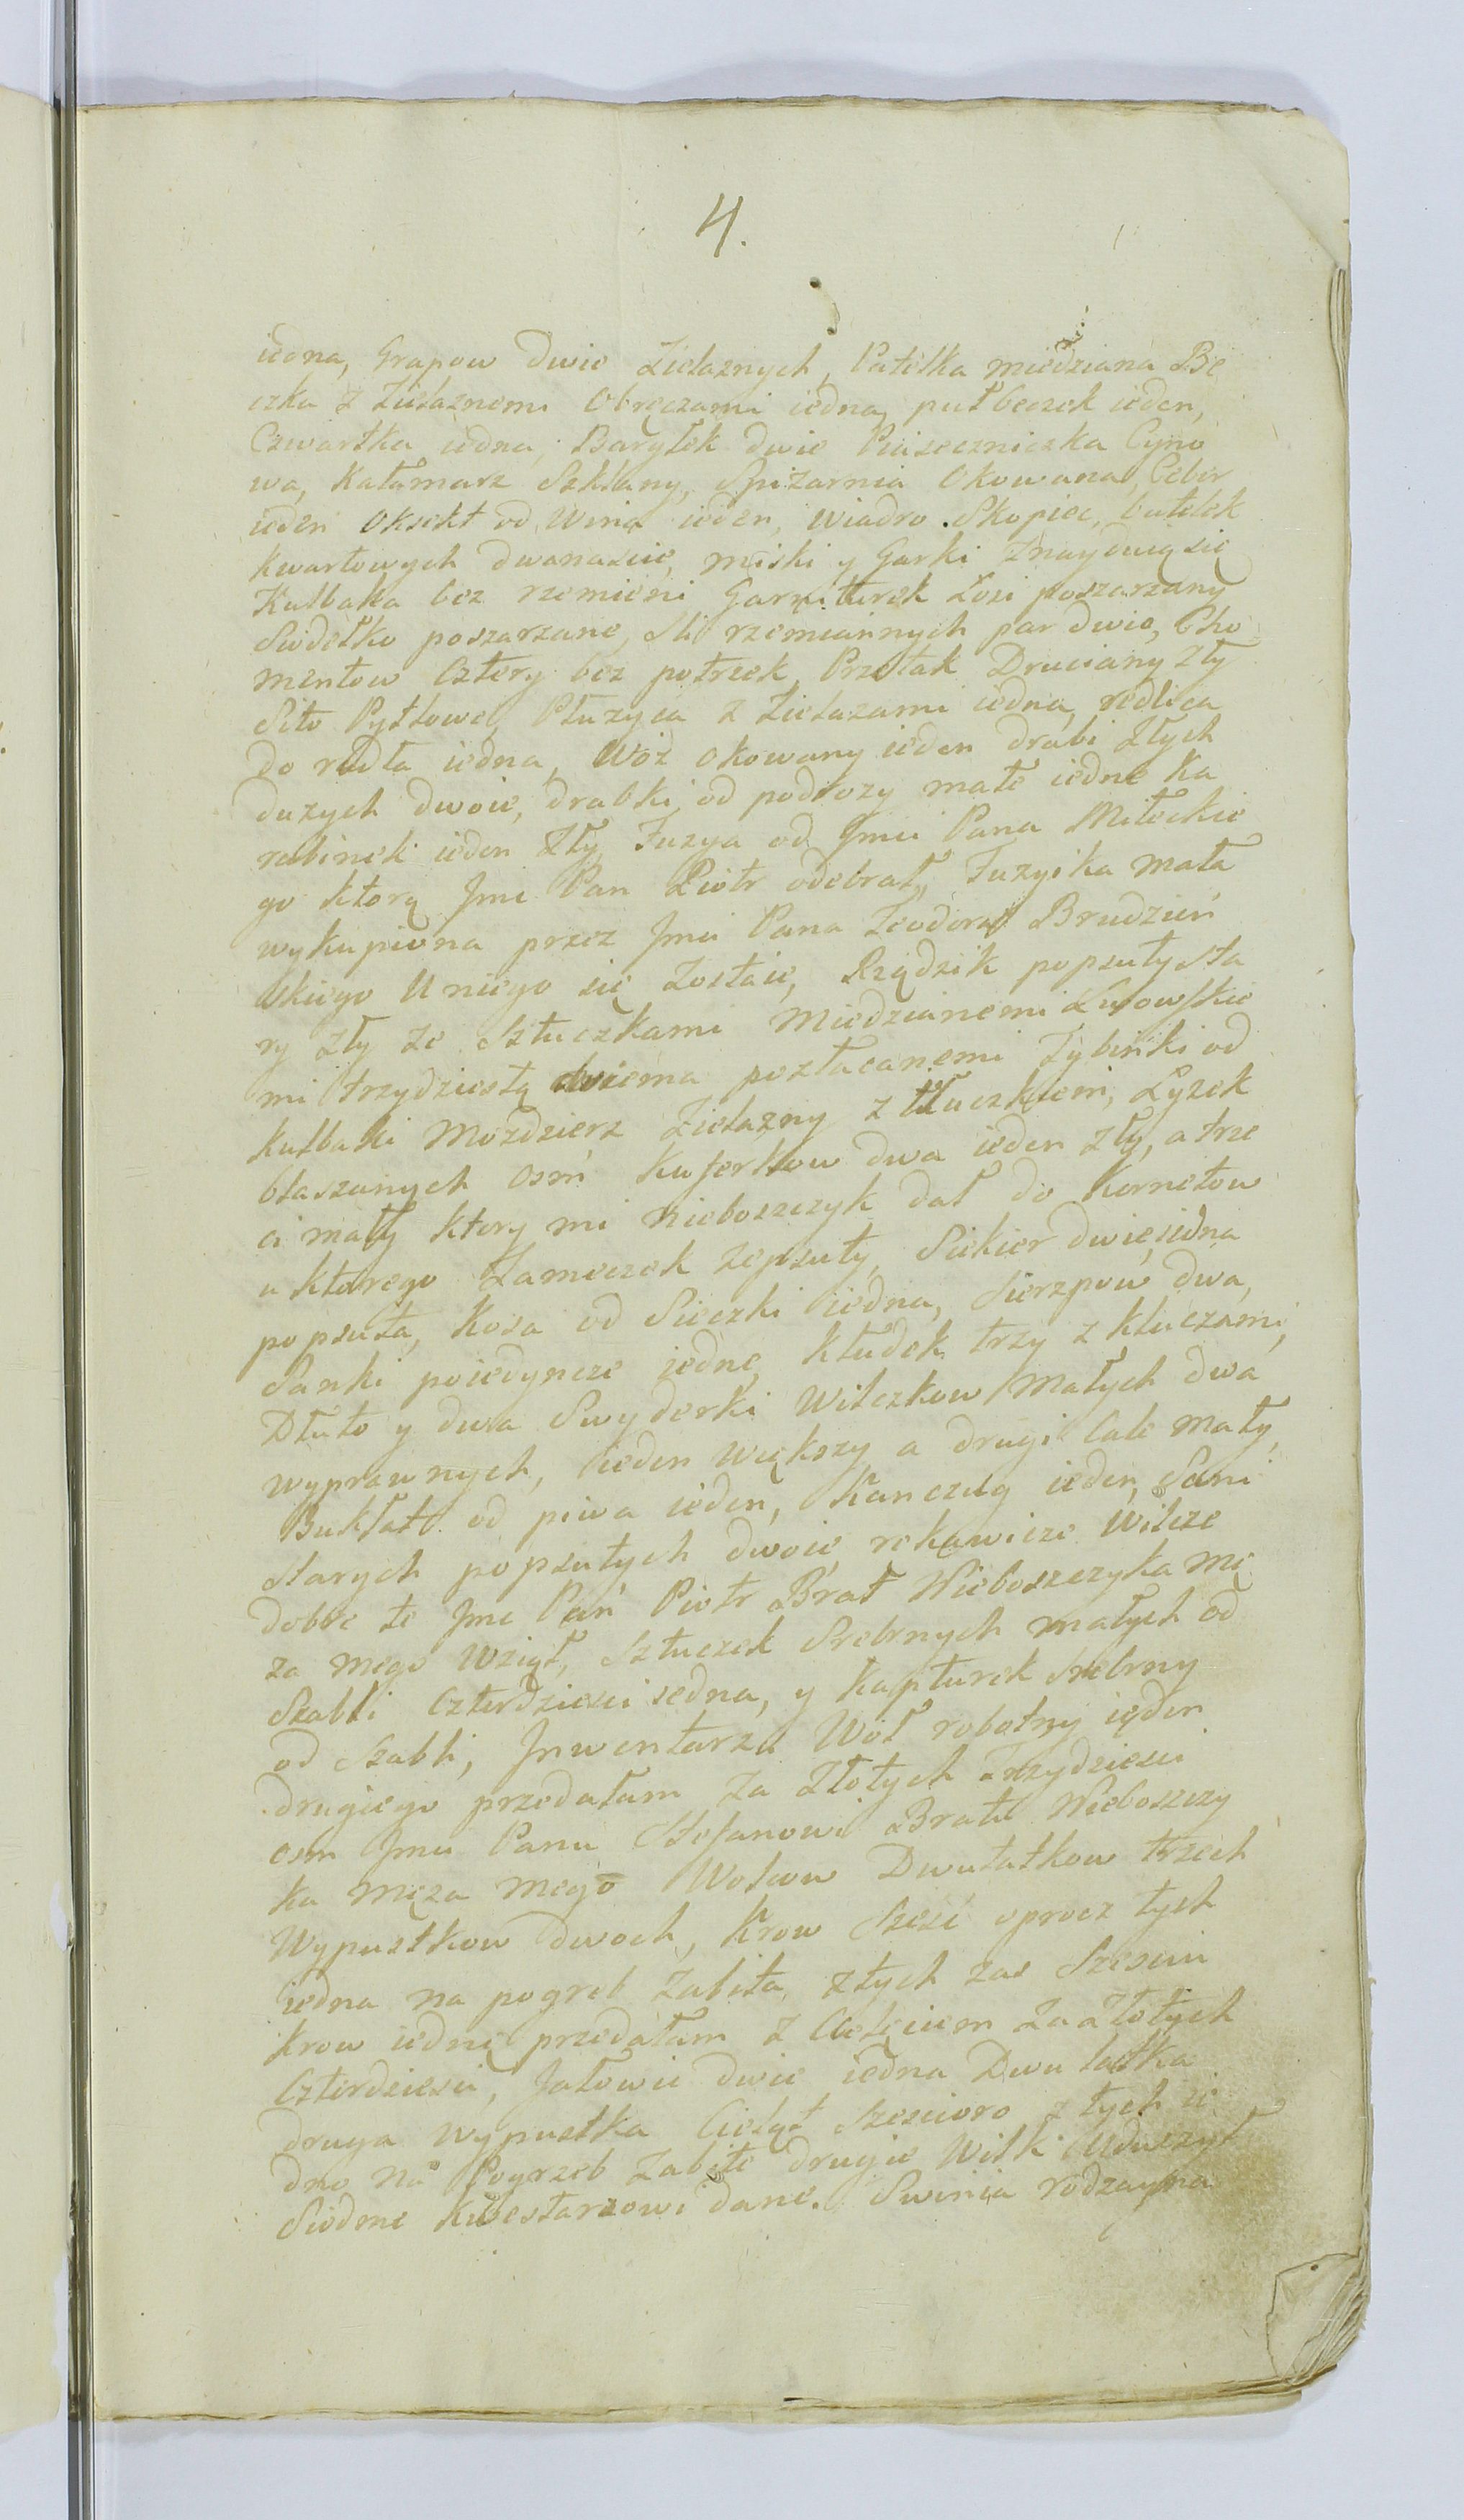 4.
iedna, Grapow dwie Zielaznych, Patelka miedziana Be
czka z Zielaznemi Obręczami iedna, puł beczek ieden,
Czwartka iedna, Baryłek dwie Piaseczniczka Cyno
wa, Kałamarz Szklany, Spiżarnia Okowana, Ceber
ieden Oksekt od Wina ieden, Wiadro Skopiec, butelek
Kwartowych dwanascie, miski y Garki znayduią się
Kulbaka bez rzemieni Garniturek Łosi poszarzany
Siodełko poszarzane, Sli rzemiannych par dwie, Cho
mentow Cztery bez potrzek, Przetak Druciany Zły
Sito Pytlowe, Płużyca z Zielazami iedna, redlica
do radła iedna, Woz Okowany ieden drabi Złych
duzych dwoie, drabki od podrozy małe iedne Ka
rabinek ieden Zły Fuzya od Jmci Pana Miłeckie
go ktorą Jmc Pan Piotr odebrał, Fuzyika mała
wykupiona przez Jmci Pana Teodora Brudzień
skiego U niego się Zostaie, Rządzik popsuty sta
ry zły ze Sztuczkami Miedzianemi Lwowskie
mi trzydziestą dwiema pozłacanemi Tybinki od
Kulbaki Mozdzierz Zielazny z tłuczkiem, Łyzek
blaszanych Osm Kuferkow dwa ieden Zły, a trze
ci mały ktory mi Nieboszczyk dał do Kornetow
u ktorego Zameczek zepsuty, Siekier dwie, iedna
popsuta, Kosa od Sieczki iedna, Sierzpow dwa,
Sanki poiedyncze iedne, Kłudek trzy z kluczami,
Dłuto y dwa Swyderki Wilczkow Małych dwa
wyprawnych, ieden większy a drugi Cale mały,
Bukłak od piwa ieden, Kanczug ieden, Sani
starych popsutych dwoie, rekawice Wilcze
dobre te Jmc Pan Piotr Brat Nieboszczyka Mę
za mego Wziął, Sztuczek Srebrnych małych od
Szabli Czterdziesci iedna, y Kapturek Srebrny
od Szabli, Jnwentarza Woł robotny ieden
drugiego przedałam za Złotych Trzydziesci
osm Jmci Panu Stefanowi Bratu Nieboszczy
ka Męza mego Wołow Dwulatkow trzech
Wypustkow dwoch, Krow Szesc oprocz tych
iedna na pogreb Zabita, z tych zas Szesciu
krow iednę przedałam z Cielęciem za Złotych
Czterdziesci, Jałowic dwie iedna Dwu latka
druga Wypustka Cieląt Szescioro z tych ie
dno na Pogrzeb Zabite drugie Wilk Uduszył
Siodme Kwestarzowi dane. Swinia rodzayna